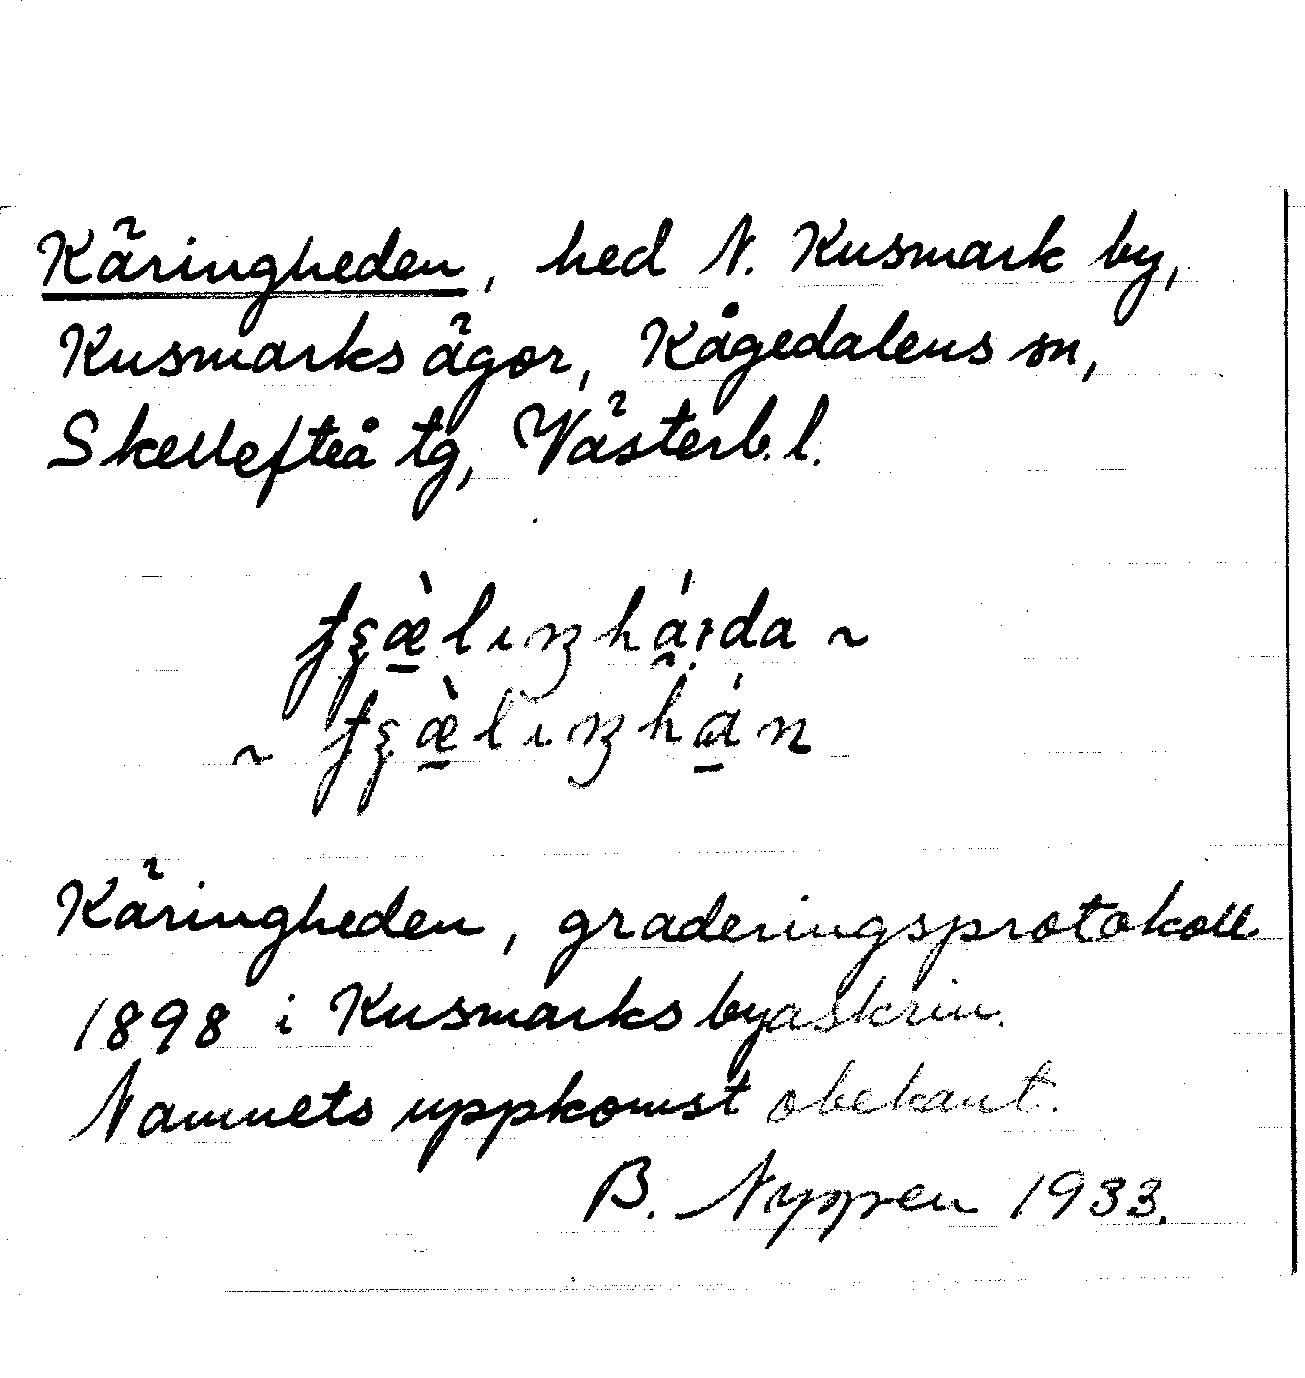 Käringheden, hed N. Kusmark by,
Kusmarks ägor, Kågedalens sn,
Skellefteå tg, Västerb. l.
Käringheden, graderingsprotokoll
1898 i Kusmarks byaskrin.
Namnets uppkomst obekant.
B. Nyppen 1933.